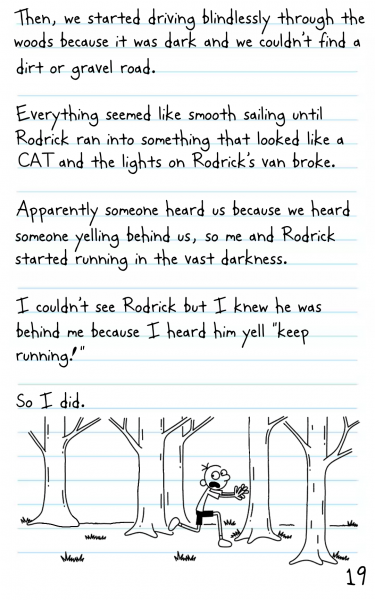 Then, we started driving blindlessly through the
woods because it was dark and we couldn't find a
dirt or gravel road.
Everything seemed like smooth sailing until
Rodrick ran into something that looked like a
CAT and the lights on Rodrick's van broke.
Apparently someone heard us because we heard
someone yelling behind us, so me and Rodrick
started running in the vast darkness.
I couldn't see Rodrick but I knew he was
behind me because I heard him yell "keep
running!"
So I did.
19